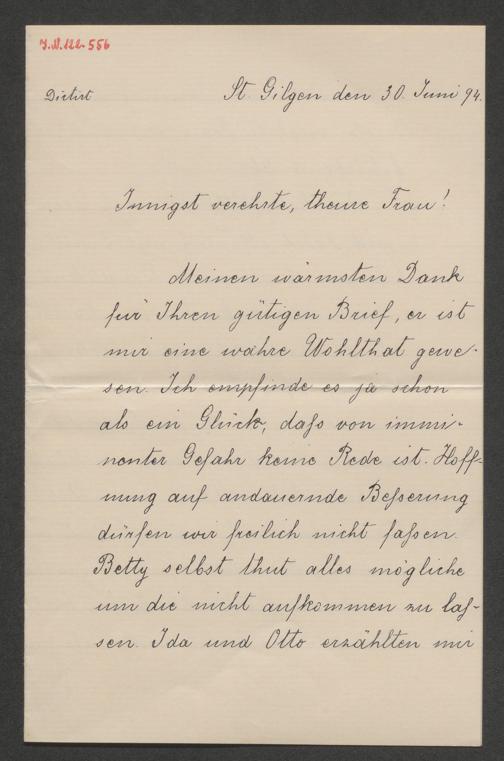 J.N. 122.556
Dictirt
St. Gilgen den 30. Juni 94.
Innigst verehrte, theure Frau!
Meinen wärmsten Dank
für Ihren gütigen Brief, er ist
mir eine wahre Wohlthat gewe-
sen. Ich empfinde es ja schon
als ein Glück, daſs von immi-
nenter Gefahr keine Rede ist. Hoff-
nung auf andauernde Beſserung
dürfen wir freilich nicht faſsen.
Betty selbst thut alles mögliche
um die nicht aufkommen zu laſ-
sen. Ida und Otto erzählten mir